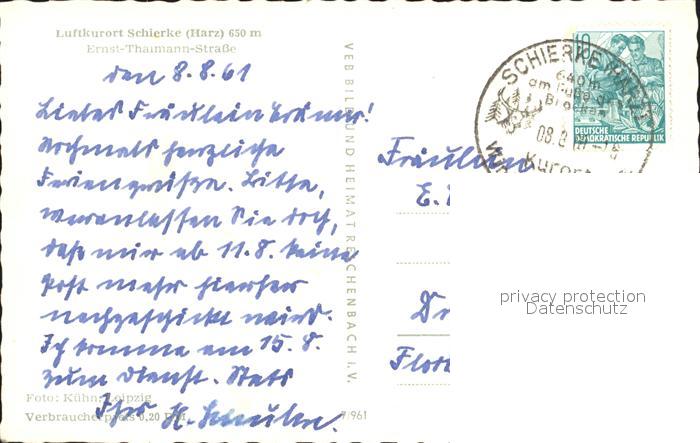 Luftkurort Schierke (Harz) 650 m
Ernst-Thälmann-Straße
den 8.8.61
Liebes Fräulein
Nochmals herzliche
Feriengrüße. Bitte,
veranlassen Sie doch,
daß mir ab 11.8. keine
Post mehr hierher
nachgeschickt wird.
Ich komme am 15. 8.
zum Dienst. Stets
Ihr H.
Foto: Kühn, Leipzig
Verbraucherpreis 0,20 DM
VEB BILD UND HEIMAT REICHENBACH i. V.
7/961
SCHIERKE HARZ
640 m
am Fuße d.
Brocken
08.8.61
Kurort
10
DEUTSCHE
DEMOKRATISCHE REPUBLIK
Fräulein
E.
Dr
privacy protection
Datenschutz